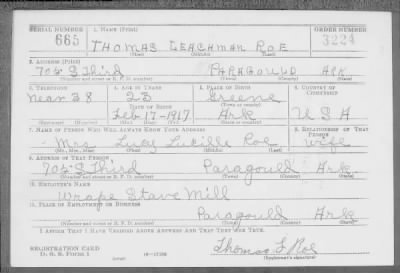 SERIAL NUMBER 1. NAME (Print) ORDER NUMBER
665 THOMAS LEACHMAN ROE 3224
(First) (Middle) (Last)
2. ADDRESS (Print)
705 S Third PARAGOULD ARK
(Number and street or R. F. D. number) (Town) (County) (State)
3. TELEPHONE 4. AGE IN YEARS 5. PLACE OF BIRTH 6. COUNTRY OF CITIZENSHIP
Near 38 23 Greene
DATE OF BIRTH (Town or county)
Feb 17-1917 Ark U S A
(Mo.) (Day) (Yr.) (State or country)
7. NAME OF PERSON WHO WILL ALWAYS KNOW YOUR ADDRESS 8. RELATIONSHIP OF THAT PERSON
Mrs Lucy Lucille Roe wife
(Mr., Mrs., Miss) (First) (Middle) (Last)
9. ADDRESS OF THAT PERSON
705 S Third Paragould Ark.
(Number and street or R. F. D. number) (Town) (County) (State)
10. EMPLOYER'S NAME
Wrape Stave Mill
11. PLACE OF EMPLOYMENT OR BUSINESS
Paragould Ark
(Number and street or R. F. D. number) (Town) (County) (State)
I AFFIRM THAT I HAVE VERIFIED ABOVE ANSWERS AND THAT THEY ARE TRUE.
REGISTRATION CARD Thomas L Roe
D. S. S. Form 1 (Registrant's signature)